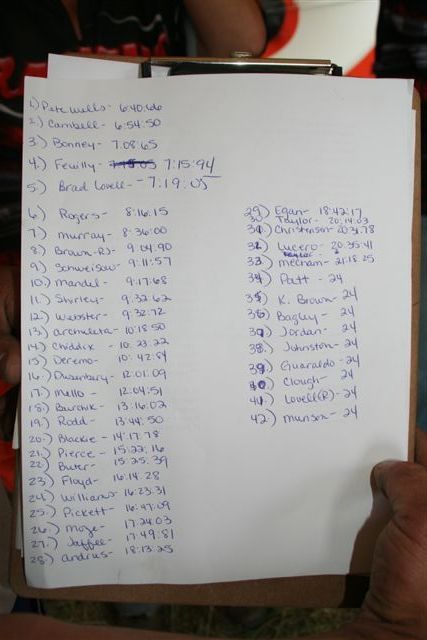 1.) Pete Wells - 6:40:66
2.) Cambell - 6:54:50
3.) Bonney - 7:08:65
4.) Feuilly - 7:15:94
5.) Brad Lovell - 7:19:05
6.) Rogers - 8:16:15
7.) Murray - 8:36:00
8.) Brown-RJ - 9:04:90
9.) Schweisow - 9:11:57
10.) Mandel - 9:17:68
11.) Shirley - 9:32:62
12.) Webster - 9:32:72
13.) Archuleta - 10:18:50
14.) Chiddix - 10:23:22
15.) Deremo - 10:42:84
16.) Dusenbury - 12:01:09
17.) Mello - 12:04:51
18.) 13:16:02
19.) Rodd - 13:44:50
20.) Blackie - 14:17:78
21.) Pierce - 15:22:16
22.) 15:25:39
23.) Floyd - 16:14:28
24.) Williams - 16:23:31
25.) Pickett - 16:47:09
26.) 17:24:03
27.) Jaffee - 17:49:81
28.) Andrus - 18:13:25
29.) Egan - 18:42:17
30. Taylor - 20:14:03
31.) Christensen 20:31:78
32.) Lucero - 20:35:41
33.) Mecham - 21:18:25
34.) Patt - 24
35.) K. Brown - 24
36.) Bagley - 24
37.) Jordan - 24
38.) Johnston - 24
39.) Guaraldo - 24
40.) Clough - 24
41.) Lovell(R) - 24
42.) Munson - 24